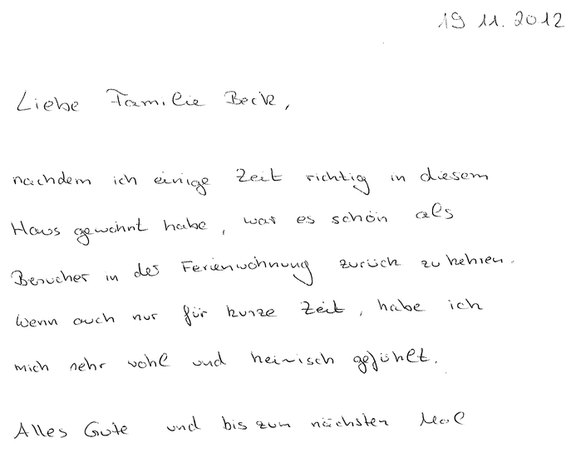 19 11. 2012
Liebe Familie Beck,
nachdem ich einige Zeit richtig in diesem
Haus gewohnt habe, war es schön als
Besucher in der Ferienwohnung zurück zu kehren.
Wenn auch nur für kurze Zeit, habe ich
mich sehr wohl und heimisch gefühlt.
Alles Gute und bis zum nächsten Mal